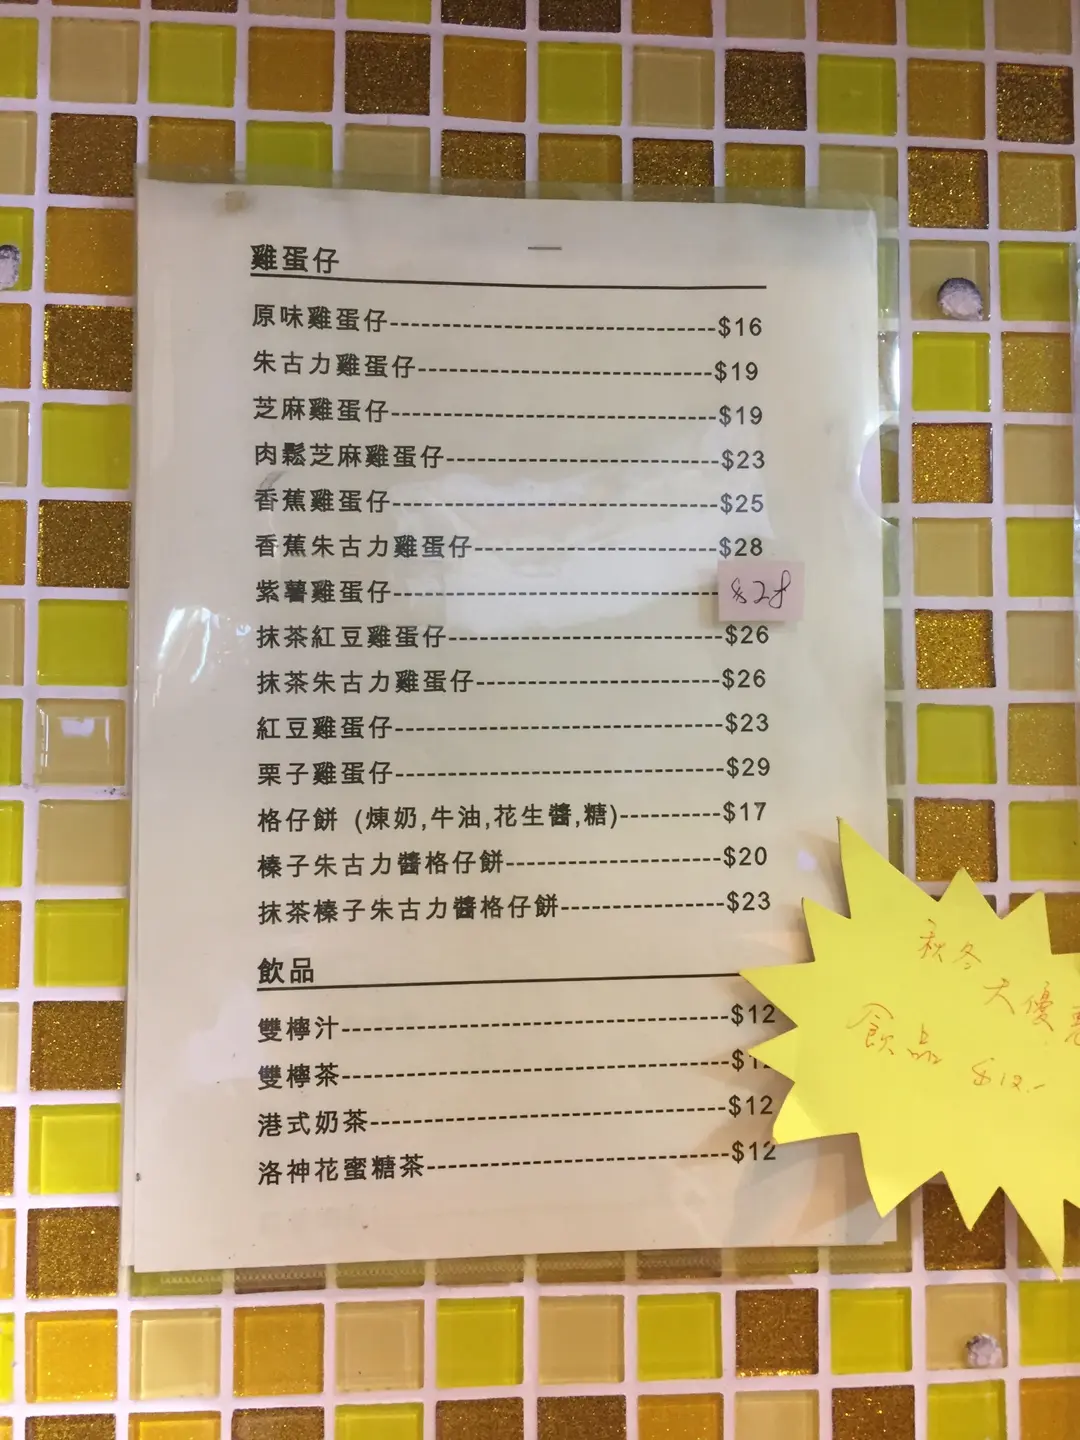 雞蛋仔
原味雞蛋仔-------------------------$16
朱古力雞蛋仔-----------------------$19
芝麻雞蛋仔-------------------------$19
肉鬆芝麻雞蛋仔---------------------$23
香蕉雞蛋仔-------------------------$25
香蕉朱古力雞蛋仔-------------------$28
紫薯雞蛋仔-------------------------$28
抹茶紅豆雞蛋仔---------------------$26
抹茶朱古力雞蛋仔-------------------$26
紅豆雞蛋仔-------------------------$23
栗子雞蛋仔-------------------------$29
格仔餅 (煉奶,牛油,花生醬,糖)--------$17
榛子朱古力醬格仔餅-----------------$20
抹茶榛子朱古力醬格仔餅-------------$23
飲品
雙檸汁-----------------------------$12
雙檸茶-----------------------------
港式奶茶---------------------------$12
洛神花蜜糖茶-----------------------$12
秋冬
大優惠
飲品 $12.-